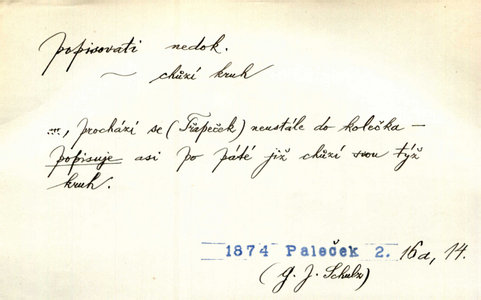 popisovati nedok.
~ chůzí kruh
..., prochází se (Třapeček) neustále do kolečka —
popisuje asi po páté již chůzí svou týž
kruh.
1874 Paleček 2. 16a, 14.
(J. J. Schulz)